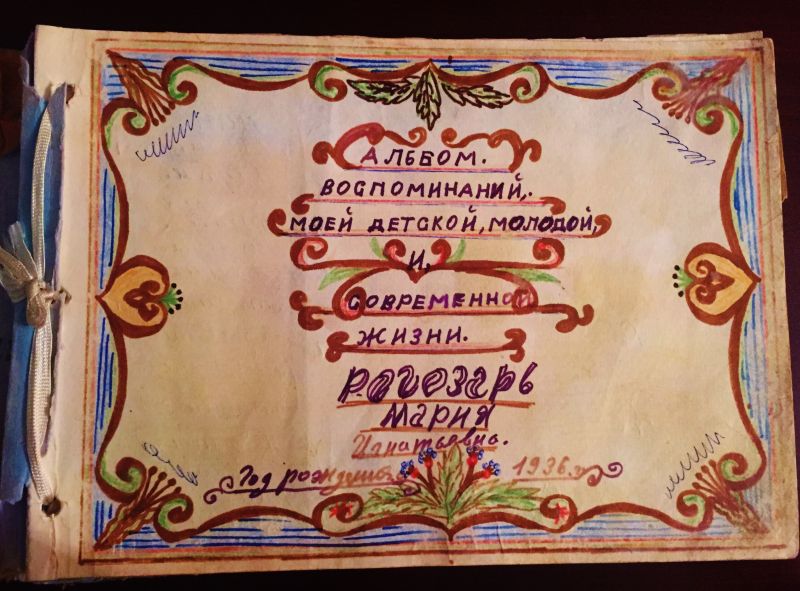 АЛЬБОМ.
ВОСПОМИНАНИЙ,.
МОЕЙ ДЕТСКОЙ, МОЛОДОЙ,
И,
СОВРЕМЕННОЙ
ЖИЗНИ.
РОГОЗАРЬ
МАРИЯ
Игнатьевна.
Год рождения 1936.